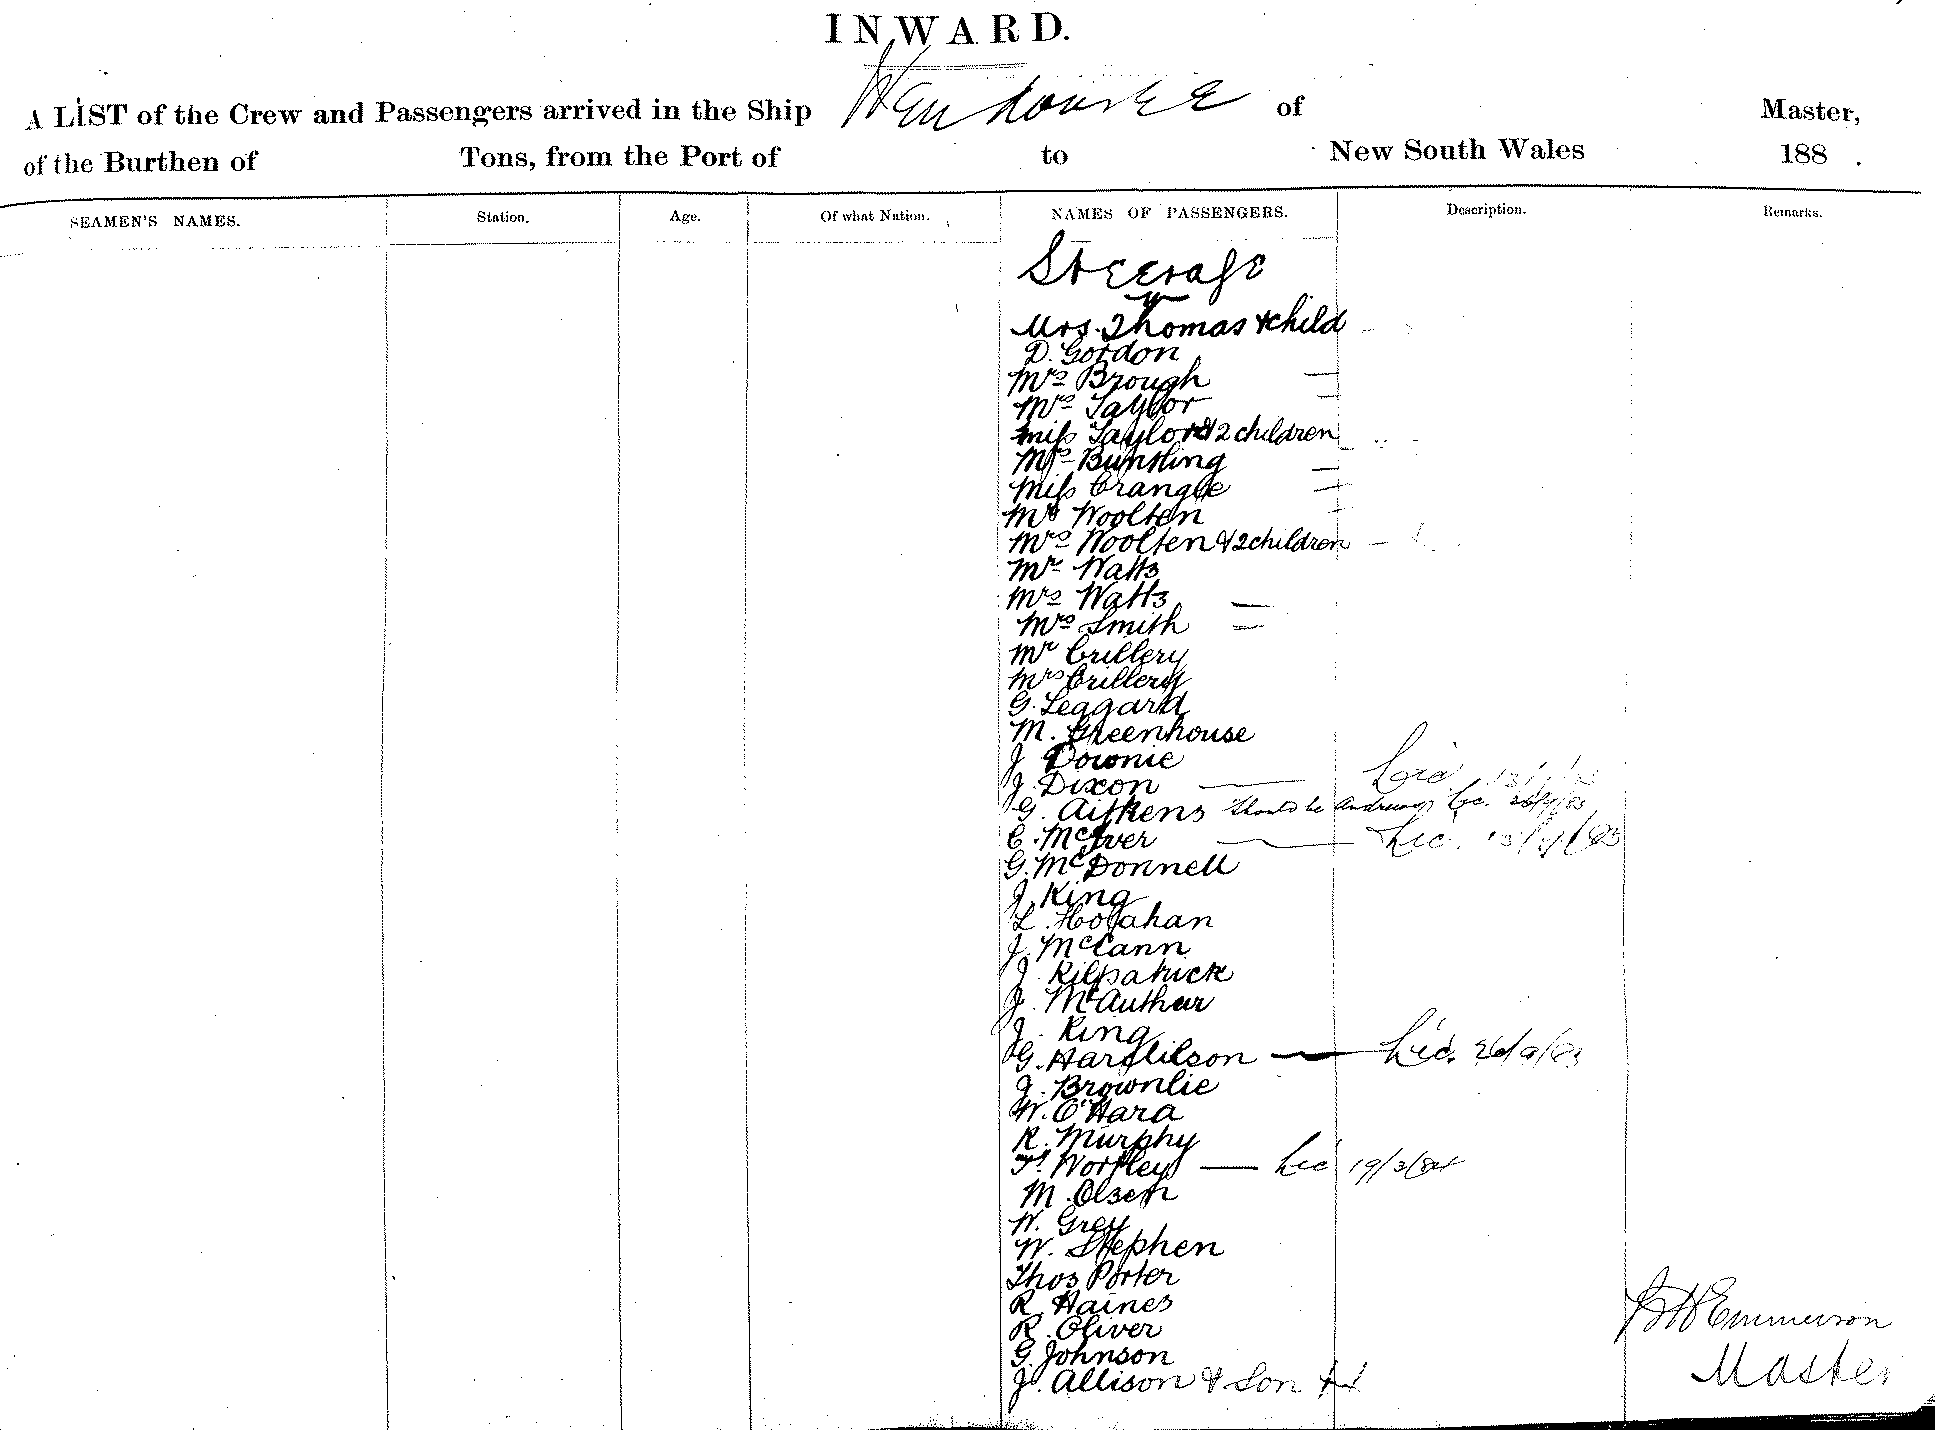 INWARD.
A LIST of the Crew and Passengers arrived in the Ship Wendouree of Master,
of the Burthen of Tons, from the Port of to New South Wales 188 .
SEAMEN'S NAMES. Station. Age. Of what Nation. NAMES OF PASSENGERS. Description. Remarks.
Steerage
Mrs. Thomas & child
D. Gordon
Mrs Brough
Mr Taylor
Miss Taylor & 2 children
Mrs Buntling
Miss Crangle
Mr Woolten
Mrs Woolten & 2 children
Mr Watts
Mrs Watts
Mrs Smith
Mr Crillery
Mrs Crillery
G. Leggard
M. Greenhouse
J Downie
J. Dixon
G. Aitkens Should be Andrews
C. McIver Lic.
G. McDonnell
J. King
L. Holahan
J. McCann
J. Kilpatrick
J. McAuthur
J. King
G. Hardilson Lic. 26/9/83
J. Brownlie
W. O'Hara
R. Murphy
F. Wortley Lic 19/3/84
M. Olsen
W. Grey
W. Stephen
Thos Porter
R. Haines
R. Oliver
G. Johnson
J. Allison & Son
Emmerson
Master